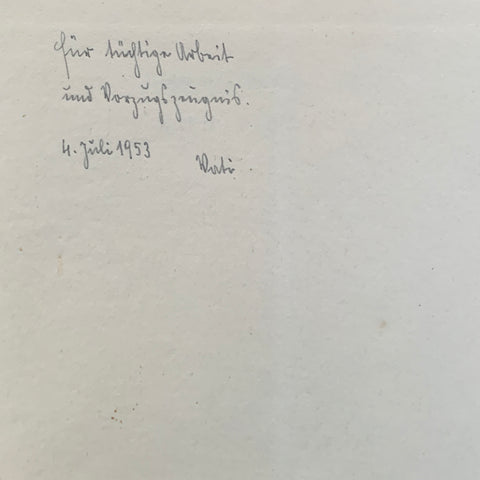 Für tüchtige Arbeit
und Vorzugszeugnis.
4. Juli 1953
Vati.